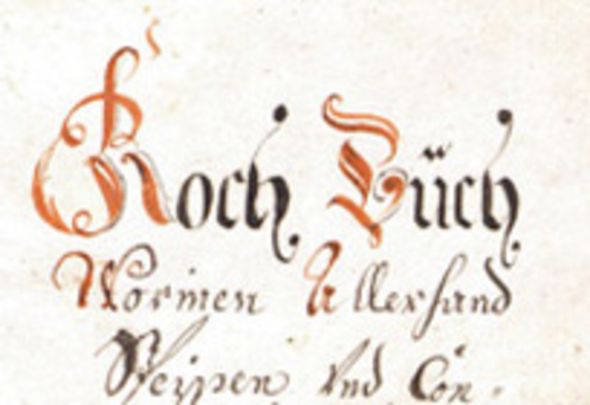 Koch Büch
Worinen Allerhand
Speÿsen Und Con-